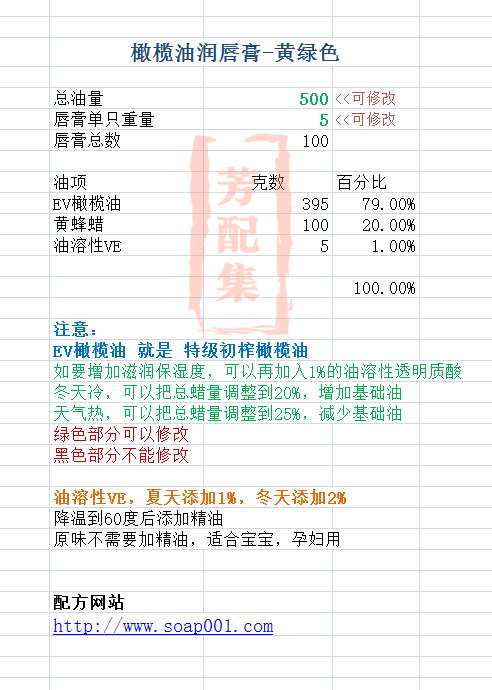 橄榄油润唇膏-黄绿色
总油量 500 <<可修改
唇膏单只重量 5 <<可修改
唇膏总数 100
油项 克数 百分比
EV橄榄油 395 79.00%
黄蜂蜡 100 20.00%
油溶性VE 5 1.00%
100.00%
芳配集
注意：
EV橄榄油 就是 特级初榨橄榄油
如要增加滋润保湿度，可以再加入1%的油溶性透明质酸
冬天冷，可以把总蜡量调整到20%，增加基础油
天气热，可以把总蜡量调整到25%，减少基础油
绿色部分可以修改
黑色部分不能修改
油溶性VE，夏天添加1%，冬天添加2%
降温到60度后添加精油
原味不需要加精油，适合宝宝，孕妇用
配方网站
http://www.soap001.com